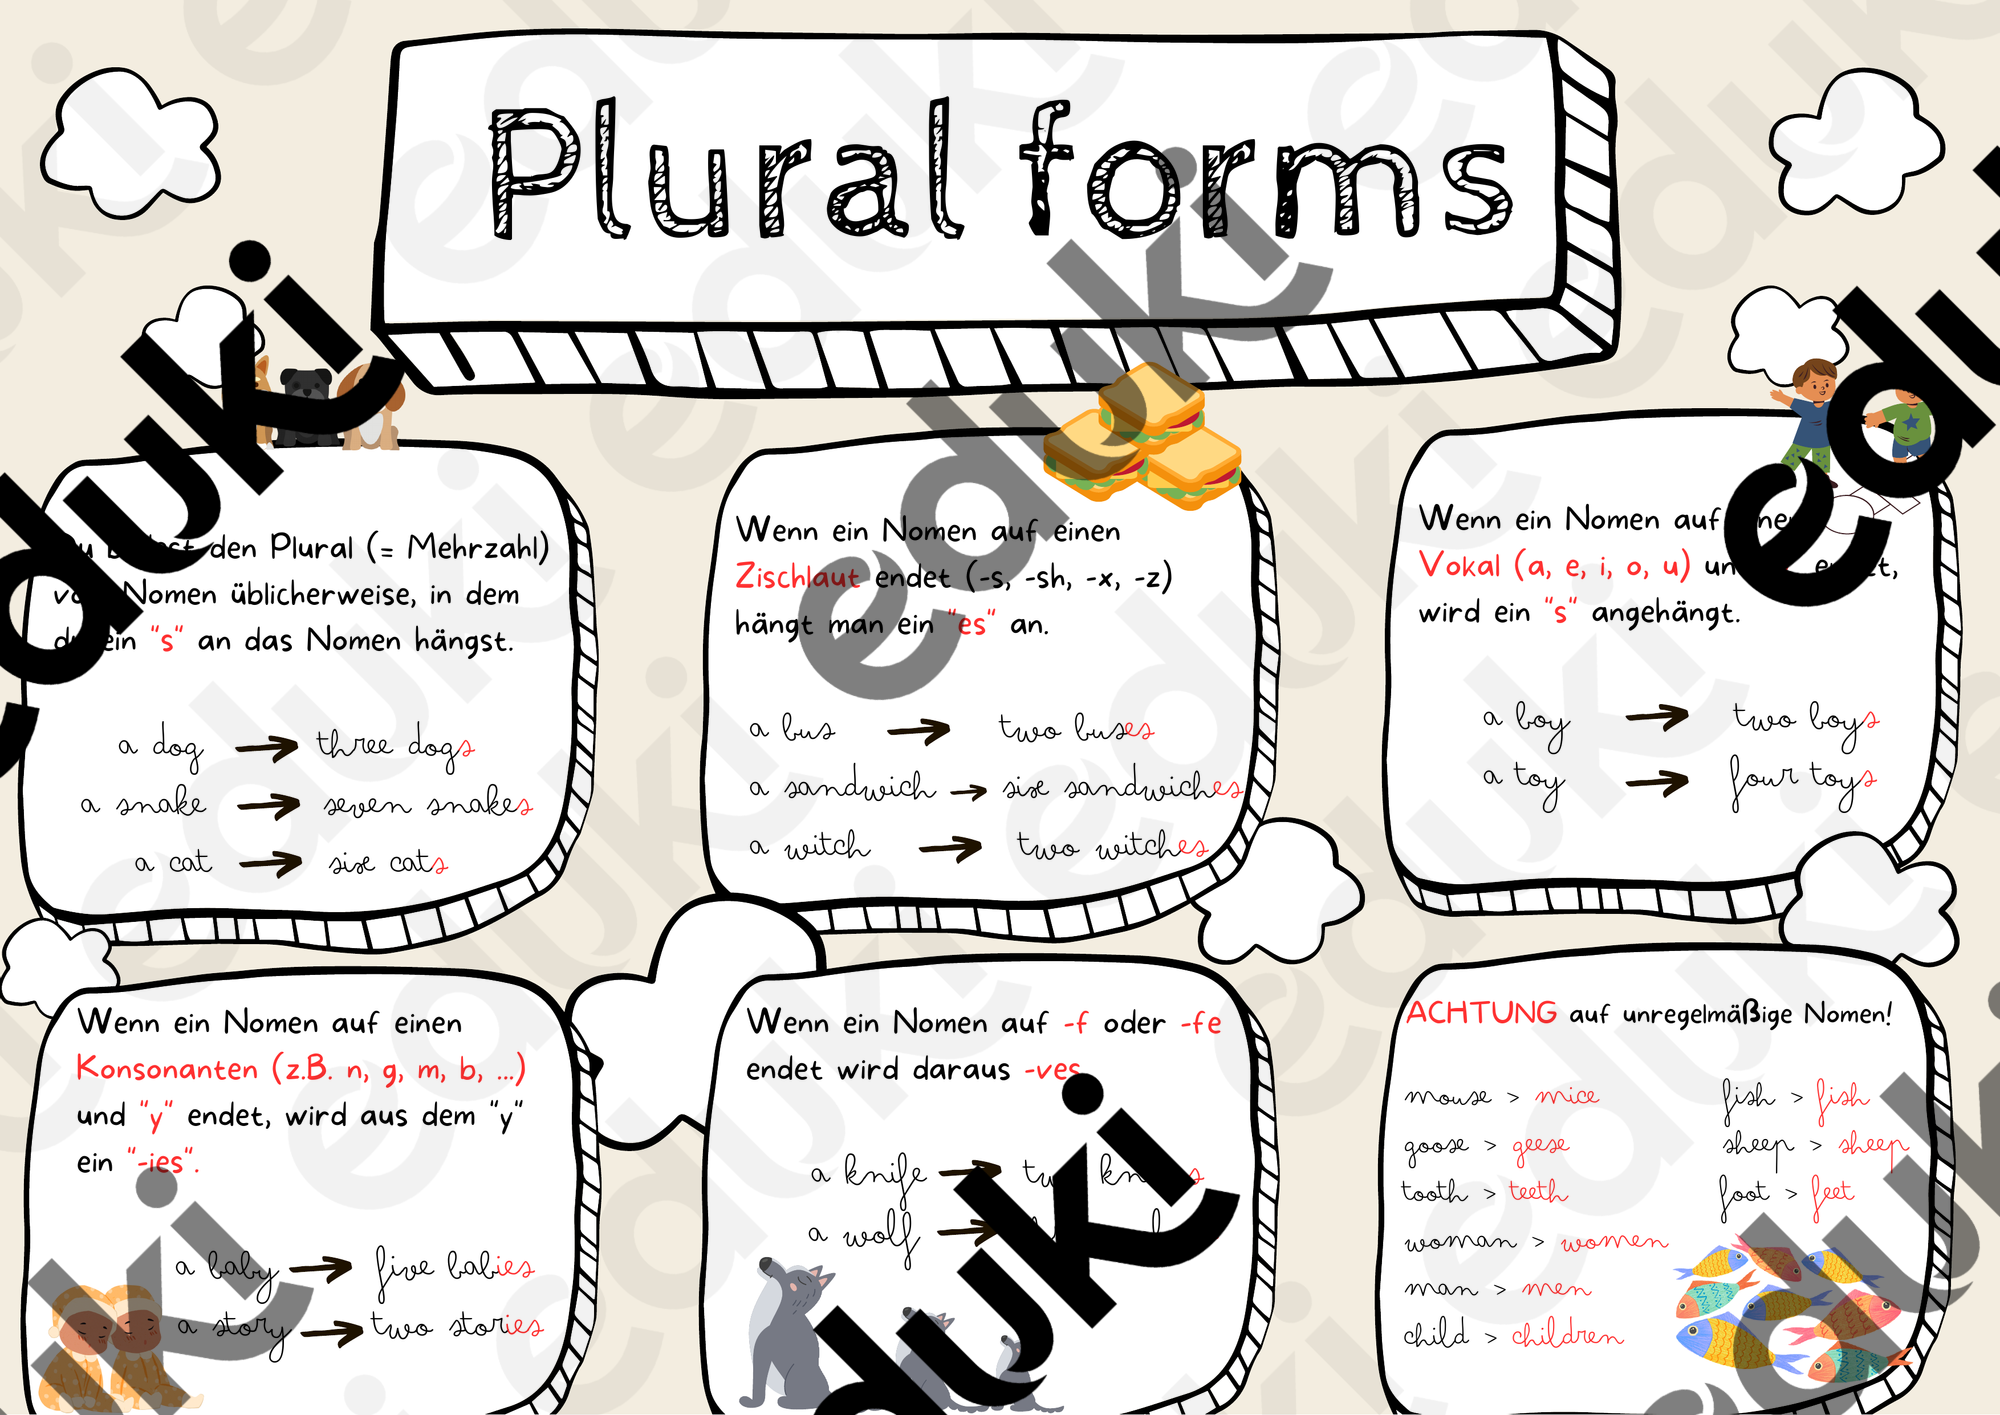 Plural forms
den Plural (= Mehrzahl)
Nomen üblicherweise, in dem
ein "s" an das Nomen hängst.
a dog three dogs
a snake seven snakes
a cat six cats
Wenn ein Nomen auf einen
Zischlaut endet (-s, -sh, -x, -z)
hängt man ein "es" an.
a bus two buses
a sandwich six sandwiches
a witch two witches
Wenn ein Nomen auf
Vokal (a, e, i, o, u)
wird ein "s" angehängt.
a boy two boys
a toy four toys
Wenn ein Nomen auf einen
Konsonanten (z.B. n, g, m, b, ...)
und "y" endet, wird aus dem "y"
ein "-ies".
a baby five babies
a story two stories
Wenn ein Nomen auf -f oder -fe
endet wird daraus -ves
a knife
a wolf
ACHTUNG auf unregelmäßige Nomen!
mouse > mice
goose > geese
tooth > teeth
woman > women
man > men
child > children
fish > fish
sheep > sheep
foot > feet
eduki
eduki
eduki
eduki